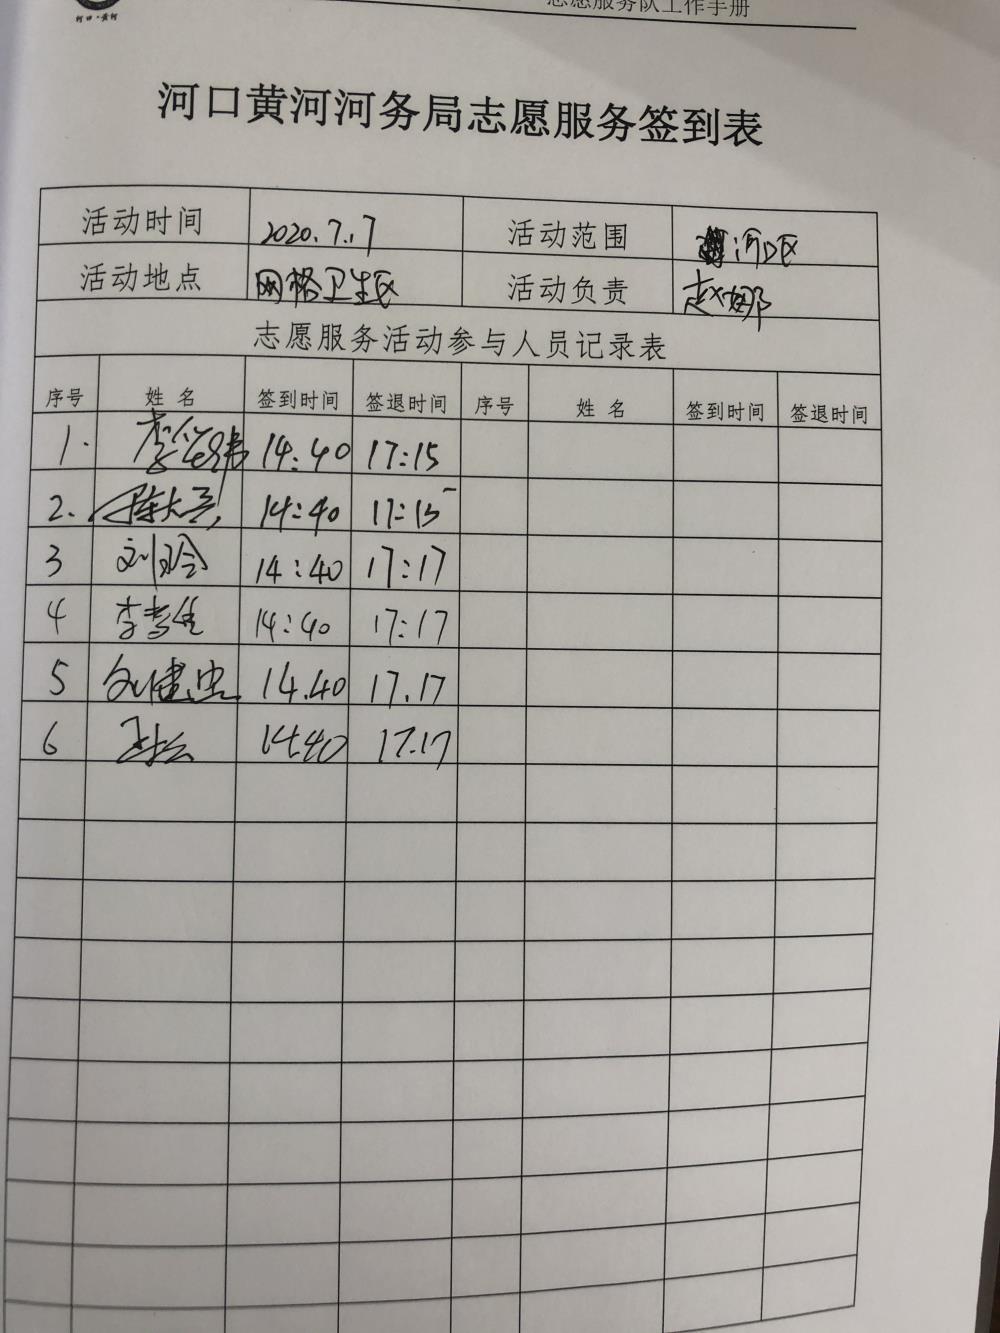 河口·黄河
志愿服务队工作手册
河口黄河河务局志愿服务签到表
活动时间 2020.7.17 活动范围 河口区
活动地点 网格卫生区 活动负责 赵娜
志愿服务活动参与人员记录表
序号 姓名 签到时间 签退时间 序号 姓名 签到时间 签退时间
1. 14:40 17:15
2. 14:40 17:15
3 刘玲 14:40 17:17
4 14:40 17:17
5 刘建忠 14.40 17.17
6 14:40 17.17